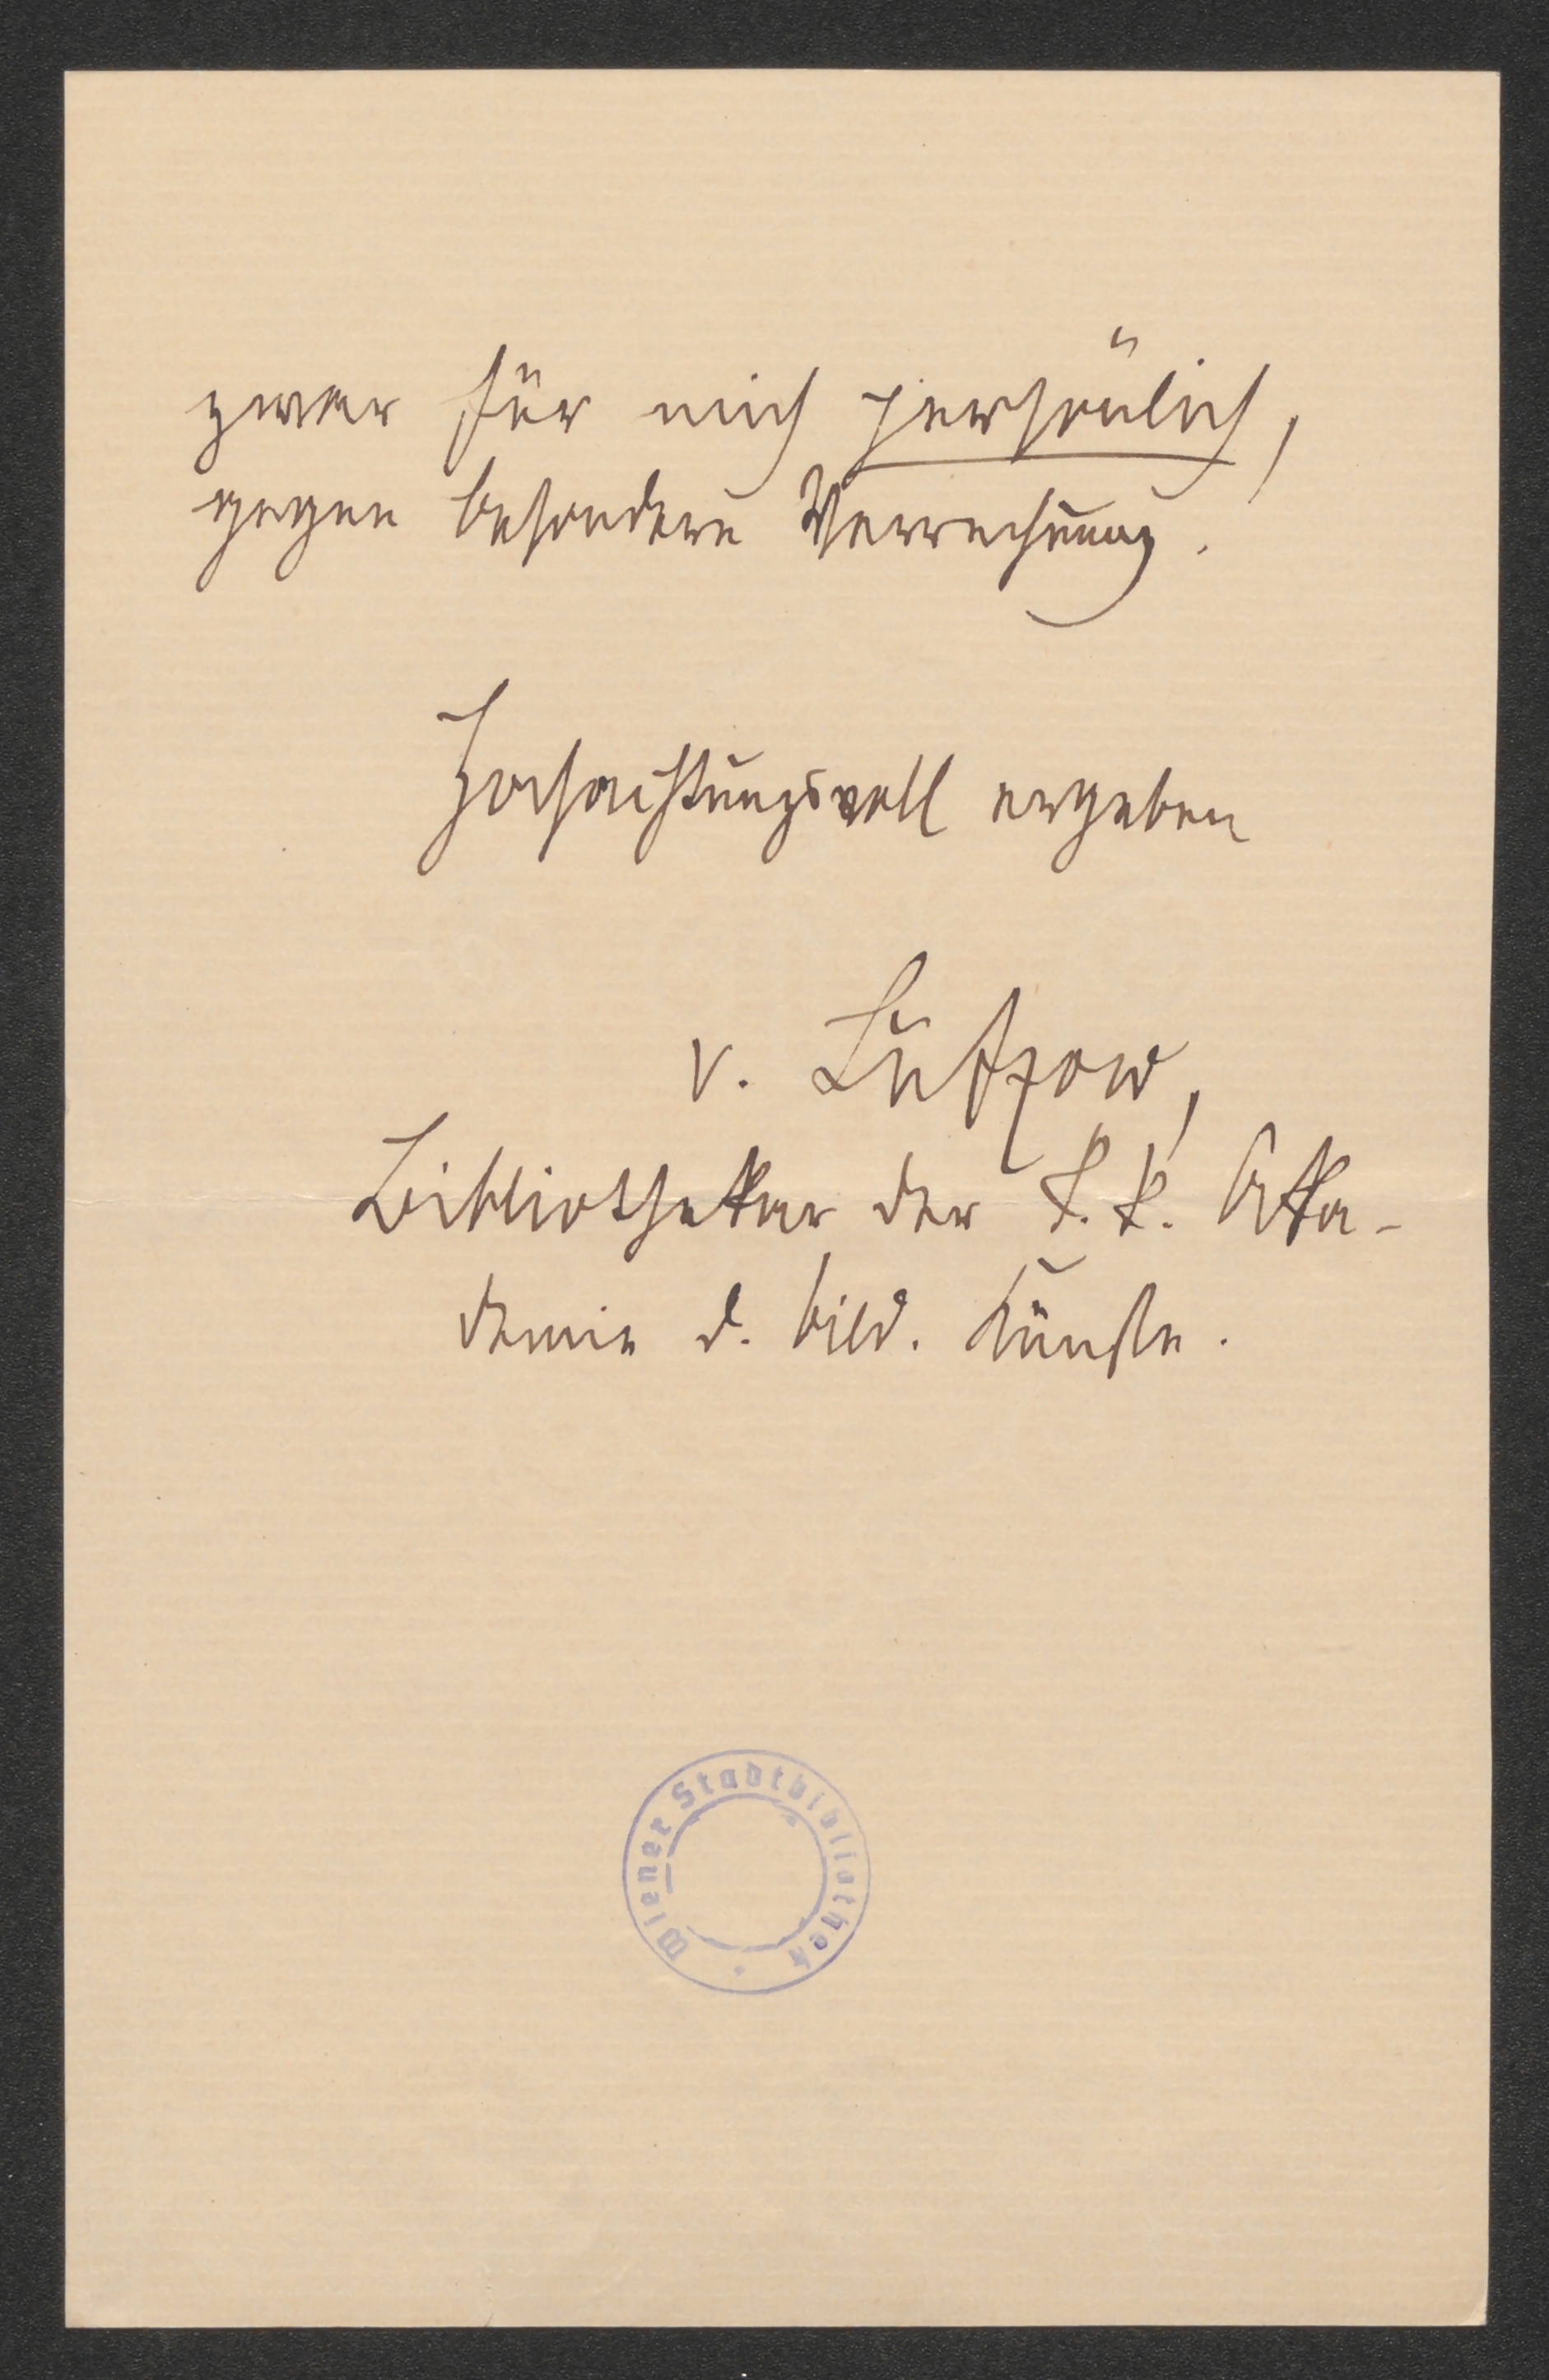 zwar für mich persönlich,
gegen besondere Verrechnung.
Hochachtungsvoll ergeben
v. Lützow,
Bibliothekar der k. k. Aka-
demie d. bild. Künste.
Wiener Stadtbibliothek